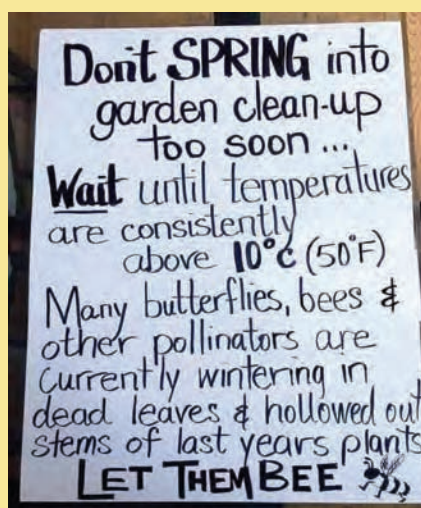 Don't SPRING into
garden clean-up
too soon...
Wait until temperatures
are consistently
above 10°C (50°F)
Many butterflies, bees &
other pollinators are
currently wintering in
dead leaves & hollowed out
stems of last years plants
LET THEM BEE